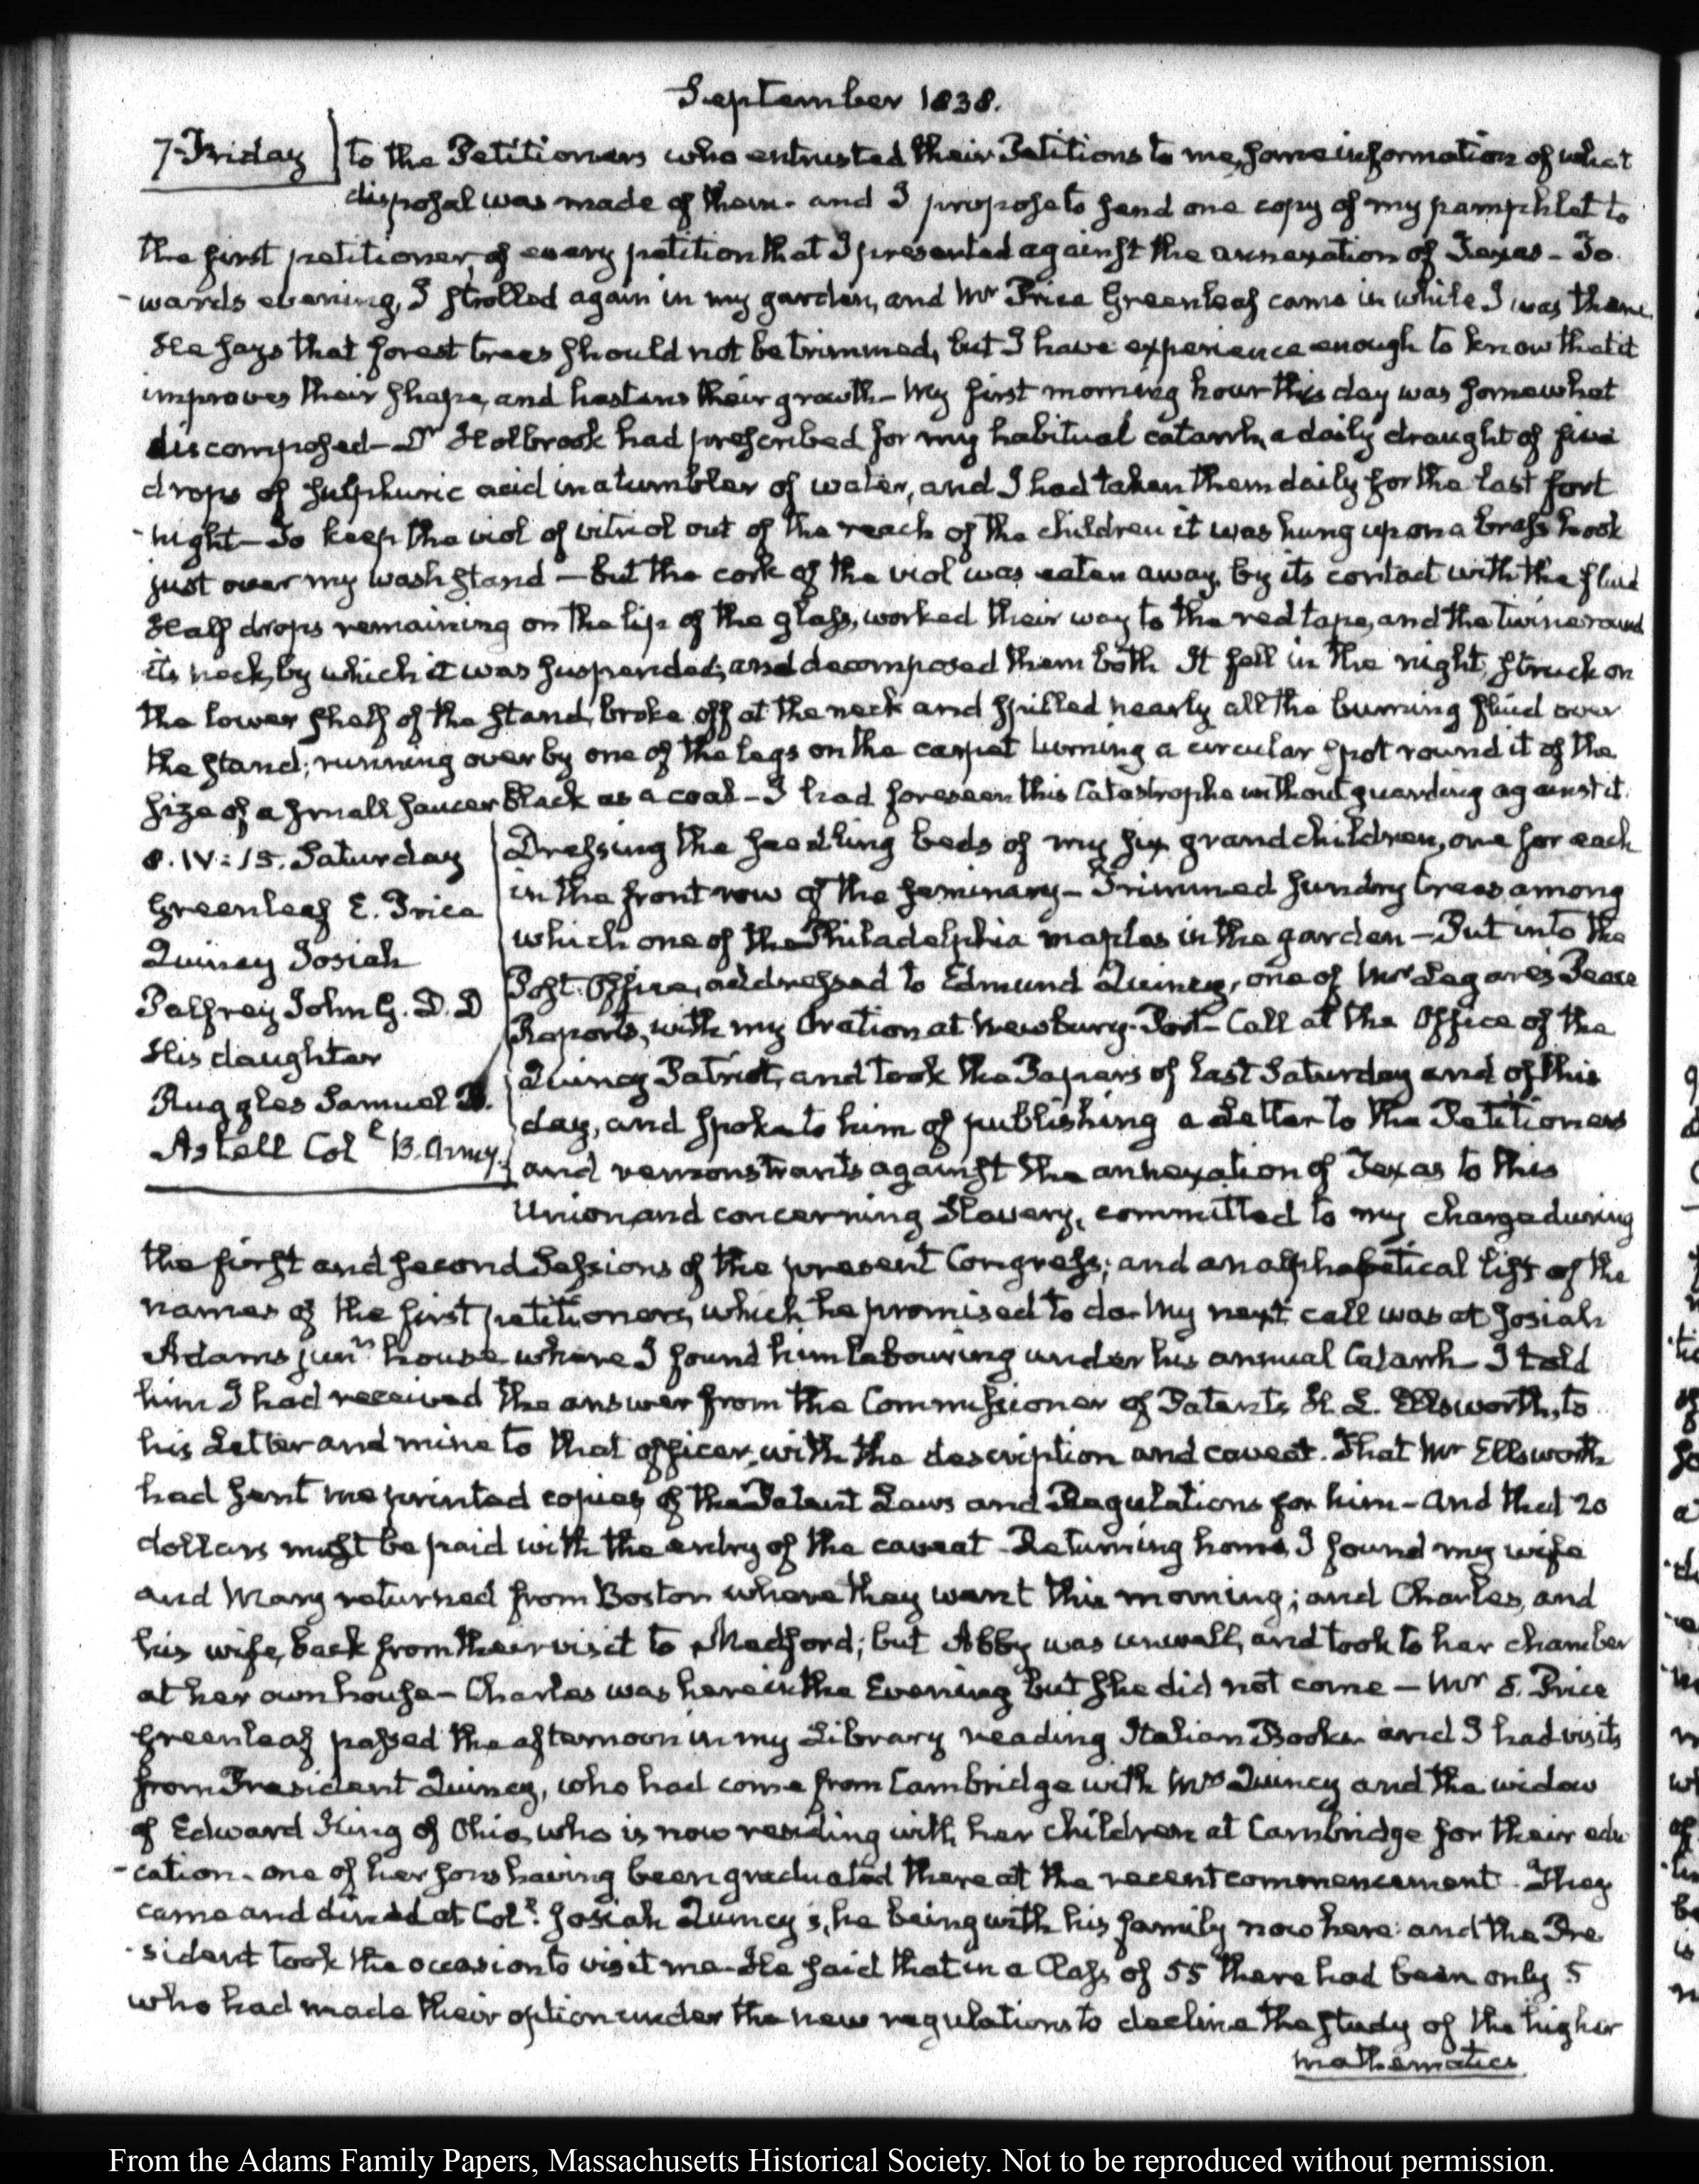 September 1838.
7-Friday
to the Petitioners who entrusted their Petitions to me, some information of what
disposal was made of them. and I propose to send one copy of my pamphlet to
the first petitioner, of every petition that I presented against the annexation of Texas - To
-wards evening, I strolled again in my garden, and Mr Price Greenleaf came in while I was there.
He says that forest trees should not be trimmed, but I have experience enough to know that it
improves their shape, and hastens their growth - My first morning hour this day was somewhat
discomposed - Dr Holbrook had prescribed for my habitual catarrh, a daily draught of five
drops of sulphuric acid in a tumbler of water, and I had taken them daily for the last fort
-night - To keep the viol of vitriol out of the reach of the children it was hung up on a brass hook
just over my wash stand - but the cork of the viol was eaten away, by its contact with the fluid
Half drops remaining on the lip of the glass, worked their way to the red tape, and the twine round
its neck, by which it was suspended; and decomposed them both It fell in the night, struck on
the lower shelf of the stand, broke off at the neck and spilled nearly all the burning fluid over
the stand; running over by one of the legs on the carpet burning a circular spot round it of the
size of a small saucer black as a coal - I had foreseen this Catastrophe without guarding against it.
8. IV: 15. Saturday
Greenleaf E. Price
Quincy Josiah
Palfrey John G. D. D
His daughter
Ruggles Samuel B.
Astell Col.l B. Army.
Dressing the seedling beds of my six grandchildren, one for each
in the front row of the seminary - Trimmed sundry trees among
which one of the Philadelphia maples in the garden - Put into the
Post-Office, addressed to Edmund Quincy, one of Mr Legare's Peace
Reports, with my Oration at Newbury-Port - Call at the Office of the
Quincy Patriot, and took the Papers of last Saturday and of this
day, and spoke to him of publishing a Letter to the Petitioners
and remonstrants against the annexation of Texas to this
Union, and concerning Slavery, committed to my charge during
the first and second Sessions of the present Congress; and an alphabetical list of the
names of the first petitioners, which he promised to do. My next call was at Josiah
Adams junr's house where I found him labouring under his annual Catarrh - I told
him I had received the answer from the Commissioner of Patents, H. L. Ellsworth, to
his Letter and mine to that officer, with the description and caveat. That Mr Ellsworth
had sent me printed copies, of the Patent Laws and Regulations for him - and that 20
dollars must be paid with the entry of the caveat - Returning home, I found my wife
and Mary returned from Boston where they went this morning; and Charles, and
his wife, back from their visit to Medford; but Abby was unwell, and took to her chamber
at her own house - Charles was here in the Evening but she did not come - Mr E. Price
Greenleaf passed the afternoon in my Library reading Italian Books. and I had visits
from President Quincy, who had come from Cambridge with Mrs Quincy and the widow
of Edward King of Ohio, who is now residing with her children at Cambridge for their edu
-cation. one of her sons having been graduated there at the recent commencement. They
came and dined at Coll. Josiah Quincy's, he being with his family now here: and the Pre
-sident took the occasion to visit me - He said that in a Class of 55 there had been only 5
who had made their option under the new regulations to decline the study of the higher
mathematics
From the Adams Family Papers, Massachusetts Historical Society. Not to be reproduced without permission.